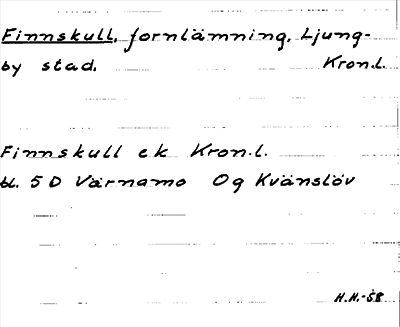 Finnskull, fornlämning, Ljung-
by stad. Kron.l.
Finnskull ek Kron.l.
bl. 5 D Värnamo Og Kvänslöv
H.H.-58